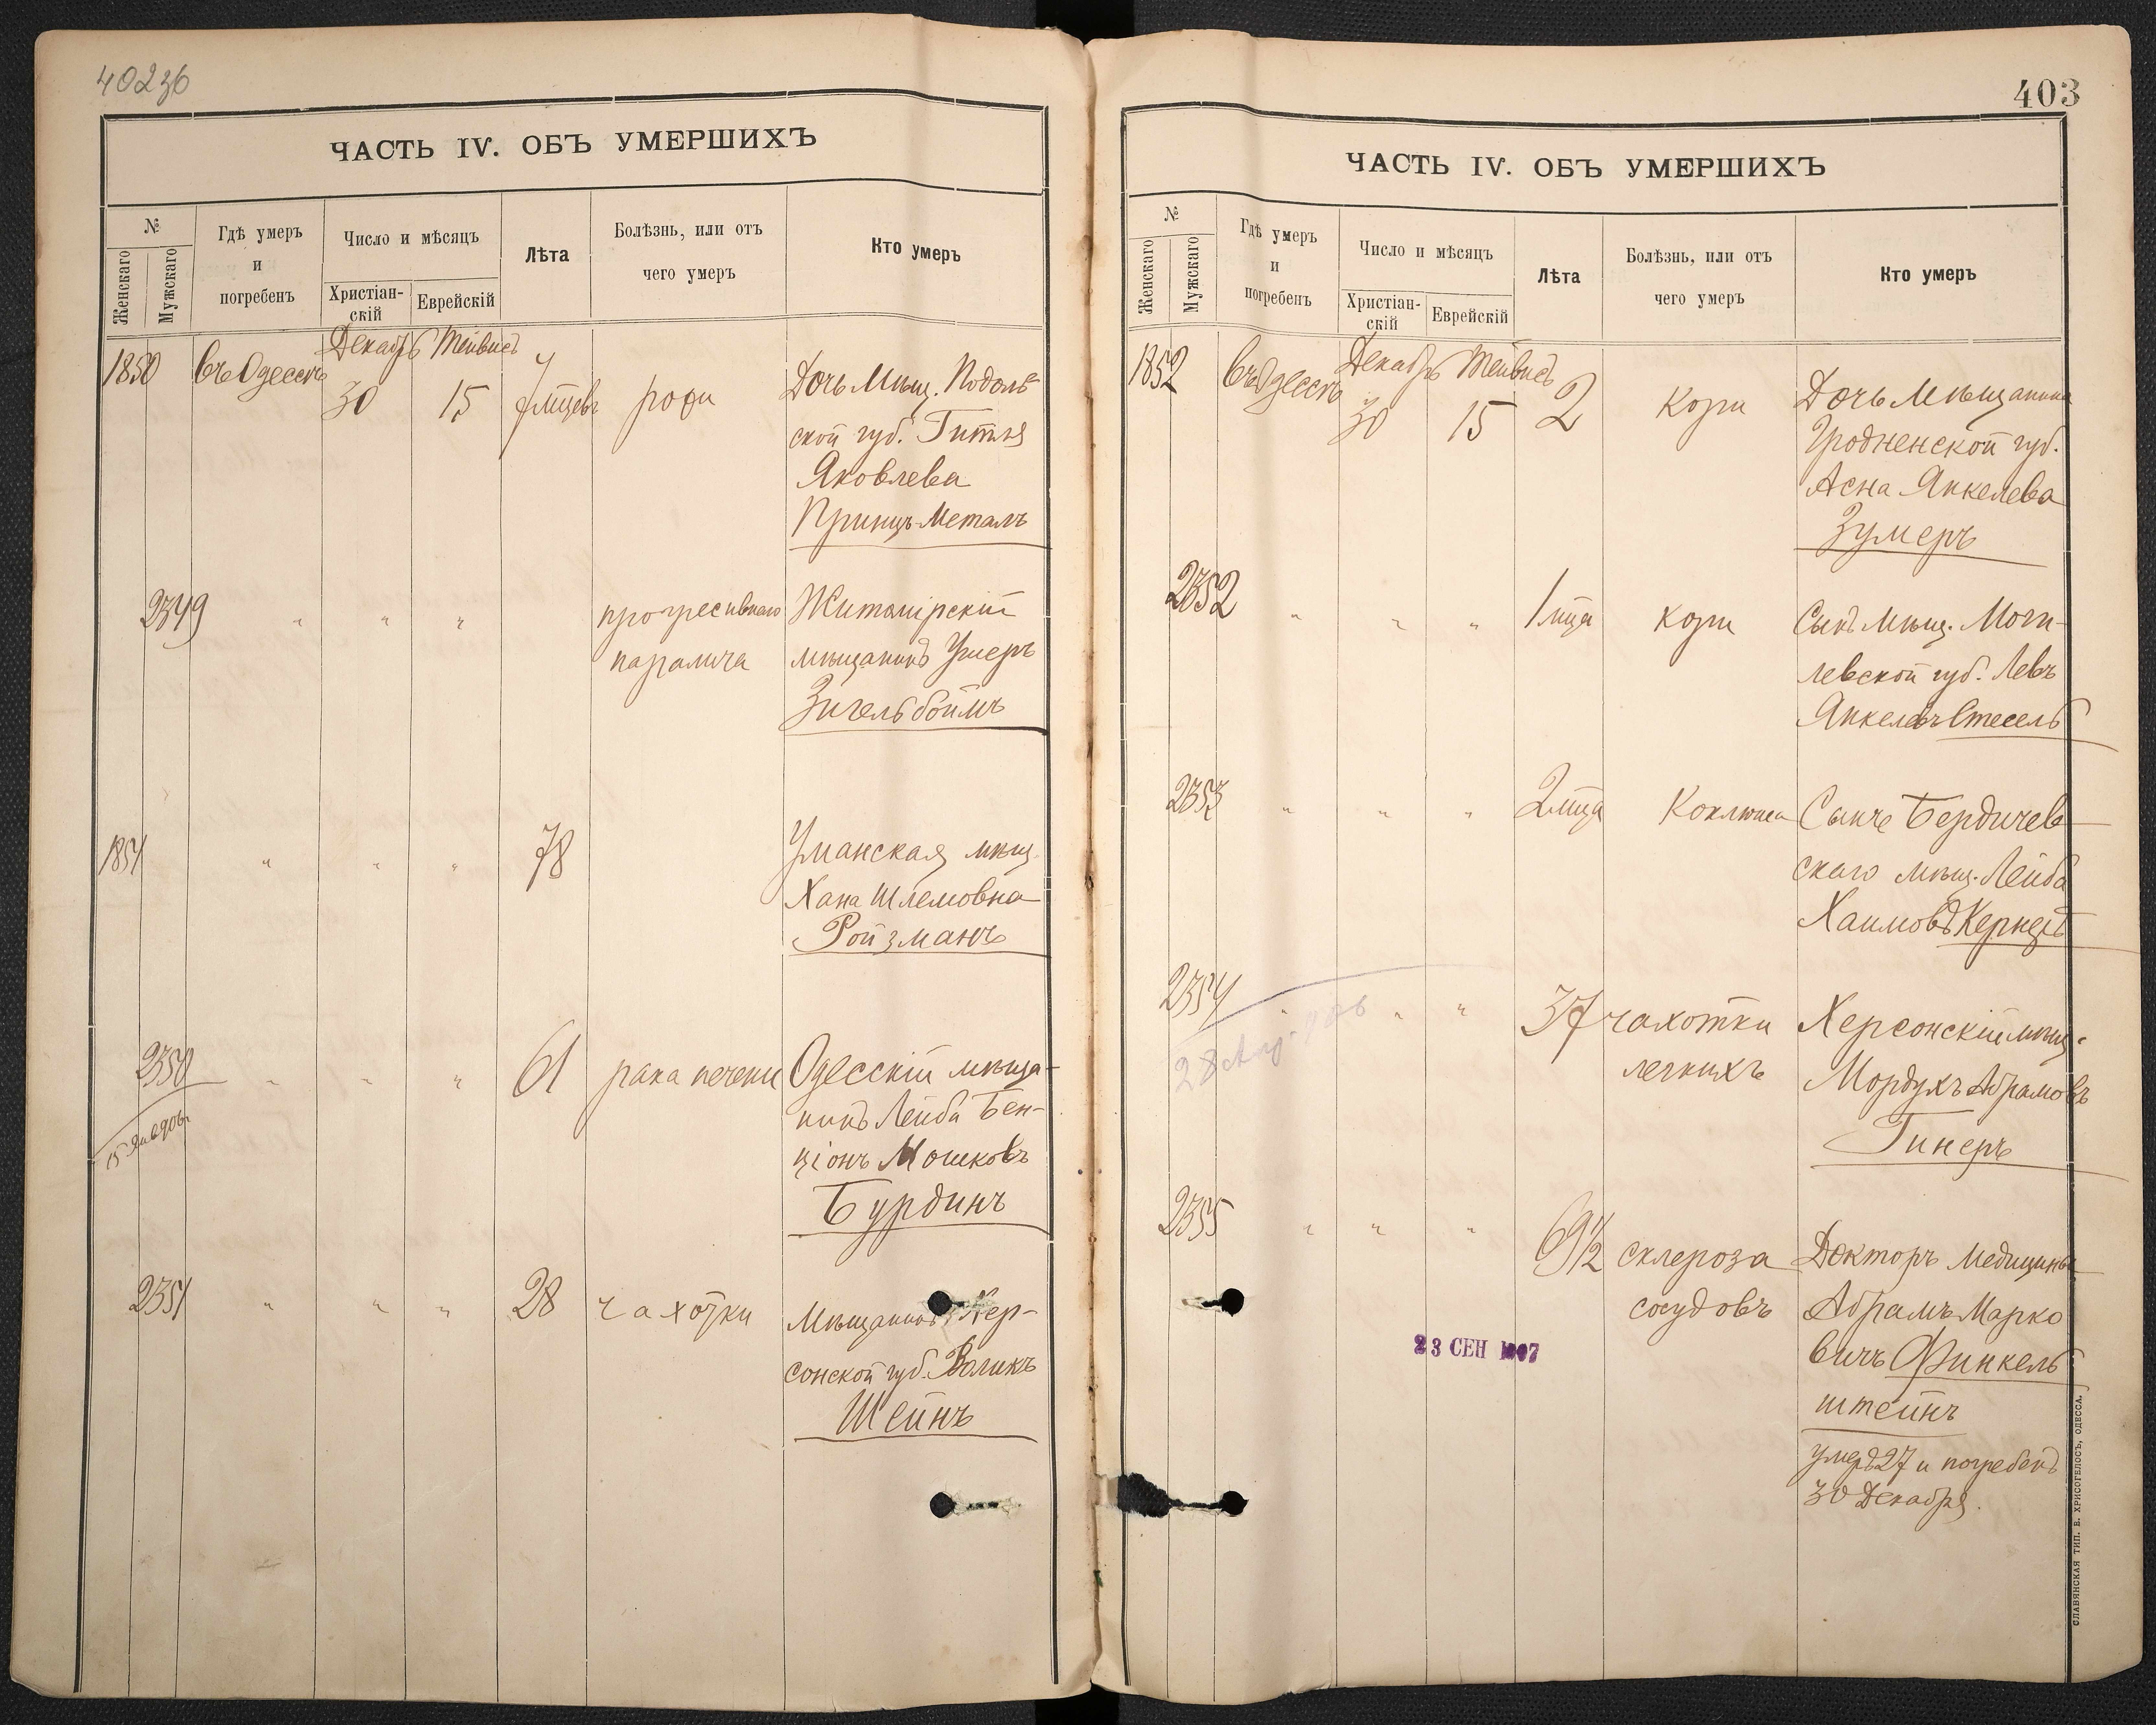 402зб
ЧАСТЬ IV. ОБЪ УМЕРШИХЪ
№
Женскаго
Мужскаго
Гдѣ умеръ
и
погребенъ
Число и мѣсяцъ
Христіан-
скій
Еврейскій
Лѣта
Болѣзнь, или отъ
чего умеръ
Кто умеръ
Декабрь Тейвисъ
1850 Въ Одессѣ 30 15 рожи
Дочь Мѣщ. Подоль
ской губ. Гитля
Яковлева
Принцъ-Металъ
2349 " " " прогресивнаго
паралича
Житомірскій
мѣщанинъ Ушеръ
Зигельбоймъ
1851 " " " 78
Уманская мѣщ.
Хана Шлемовна
Ройзманъ
2350 " " " 61 рака печени
15 Янв 906
Одесскій мѣща-
нинъ Лейба Бен-
ціонъ Мошковъ
Бурдинъ
2351 " " " 28 чахотки
Мѣщанинъ Хер-
сонской губ. Воликъ
Шейнъ
403
ЧАСТЬ IV. ОБЪ УМЕРШИХЪ
№
Женскаго
Мужскаго
Гдѣ умеръ
и
погребенъ
Число и мѣсяцъ
Христіан-
скій
Еврейскій
Лѣта
Болѣзнь, или отъ
чего умеръ
Кто умеръ
Декабрь Тейвисъ
1852 Въ Одессѣ 30 15 2 кори
Дочь Мѣщанина
Гродненской губ.
Асна Янкелева
Зумеръ
2352 " " " 1 мца кори
Сынъ мѣщ. Моги-
левской губ. Левъ
Янкелевъ Стесель
2353 " " " 2 мца Коклюша
Сынъ Бердичев
скаго мѣщ. Лейба
Хаимовъ Кернеръ
2354 " " " 37 чахотки
легкихъ
Херсонскій мѣщ.
Мордухъ Абрамовъ
Гинеръ
2355 " " " 69 1/2 склероза
сосудовъ
Докторъ Медицины
Абрамъ Марко
вичъ Финкель
штейнъ
умеръ 27 и погребенъ
30 Декабря.
23 СЕН 1907
СЛАВЯНСКАЯ ТИП. Е. ХРИСОГЕЛОСЪ, ОДЕССА.